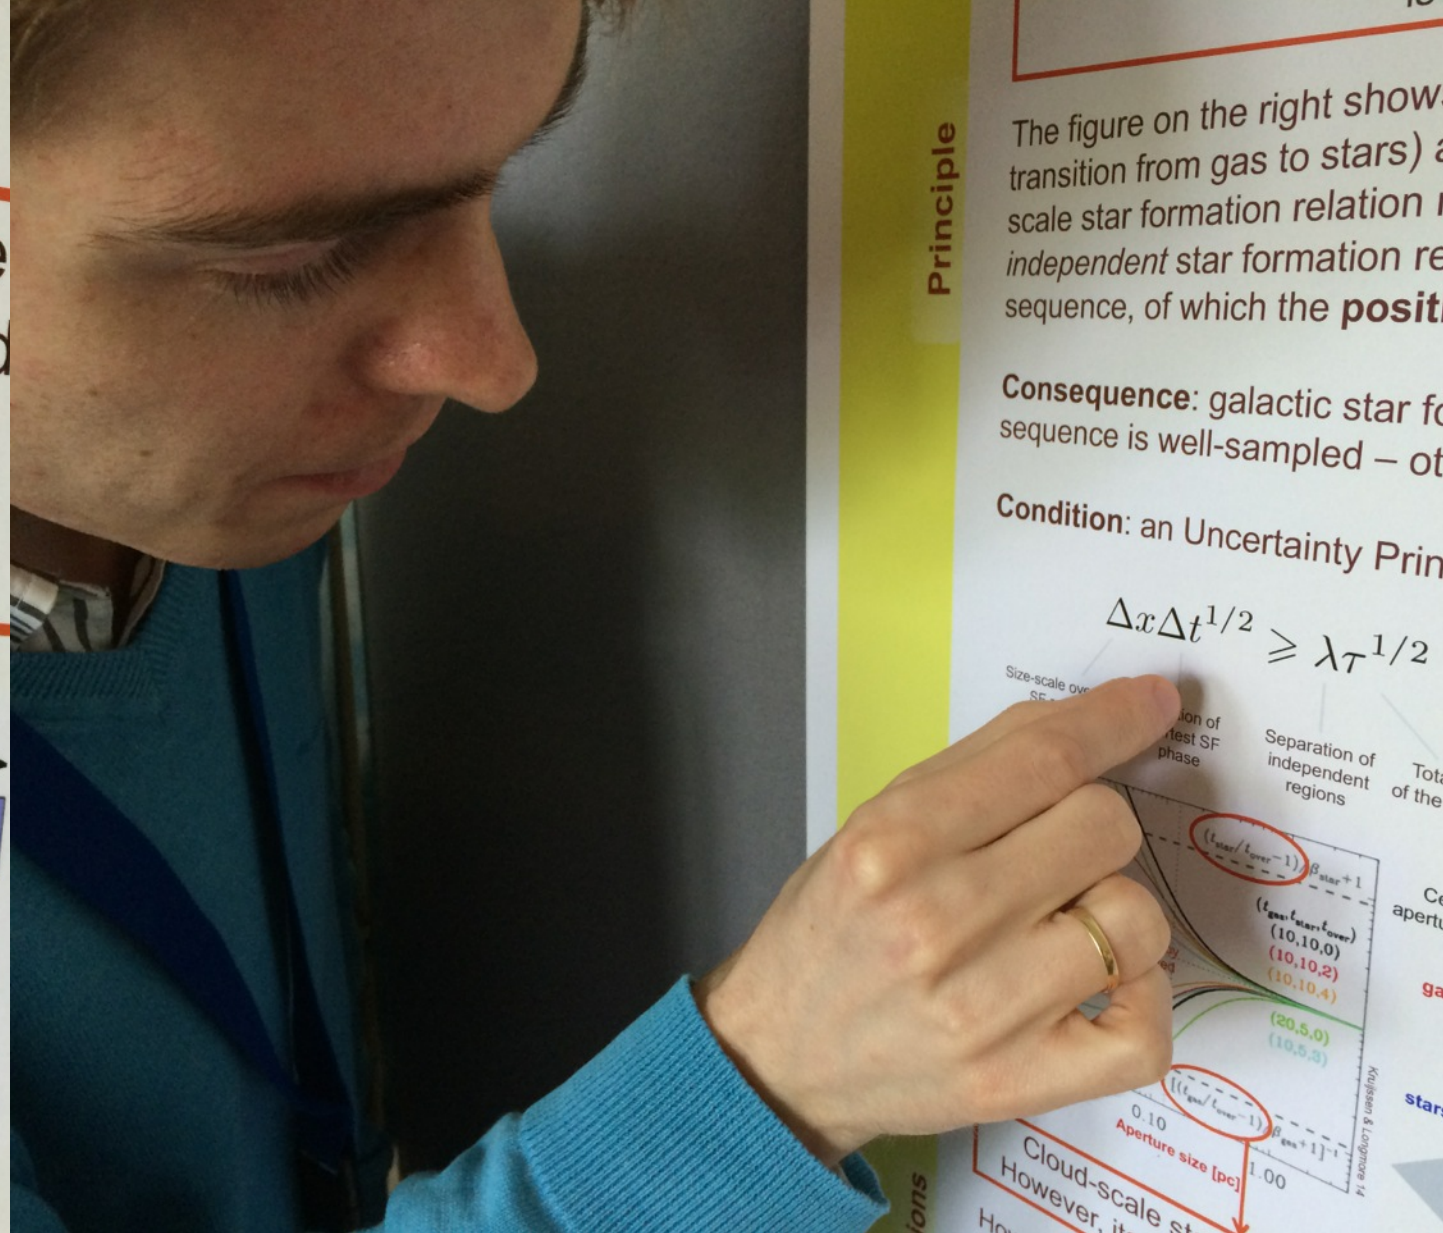 Principle
The figure on the right show
transition from gas to stars) a
scale star formation relation
independent star formation re
sequence, of which the positi
Consequence: galactic star fo
sequence is well-sampled – ot
Condition: an Uncertainty Prin
ΔxΔt^1/2 ⩾ λτ^1/2
Size-scale ov
ion of
test SF
phase
Separation of
independent
regions
Tota
of the
(t_star/t_over−1)/β_star+1
(t_gas,t_star,t_over)
(10,10,0)
(10,10,2)
(10,10,4)
(20,5,0)
(10,5,3)
[(t_gas/t_over−1)/β_gas+1]^−1
0.10
1.00
Aperture size [pc]
Kruijssen & Longmore 14
Ce
apertu
ga
stars
ions
Cloud-scale st
However, it
Ho